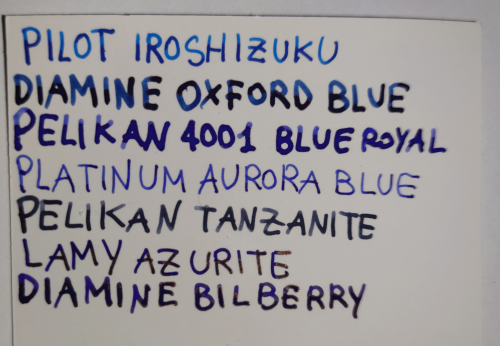 PILOT IROSHIZUKU
DIAMINE OXFORD BLUE
PELIKAN 4001 BLUE ROYAL
PLATINUM AURORA BLUE
PELIKAN TANZANITE
LAMY AZURITE
DIAMINE BILBERRY